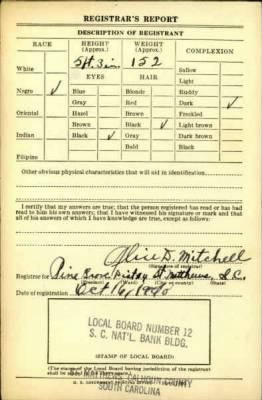 REGISTRAR'S REPORT
DESCRIPTION OF REGISTRANT
RACE HEIGHT (Approx.) WEIGHT (Approx.) COMPLEXION
5 ft. 3 in. 152
White Sallow
EYES HAIR Light
Negro ✓ Blue Blonde Ruddy
Gray Red Dark ✓
Oriental Hazel Brown Freckled
Brown Black ✓ Light brown
Indian Black ✓ Gray Dark brown
Bald Black
Filipino
Other obvious physical characteristics that will aid in identification
I certify that my answers are true; that the person registered has read or has had
read to him his own answers; that I have witnessed his signature or mark and that
all of his answers of which I have knowledge are true, except as follows:
Alice D. Mitchell
(Signature of registrar)
Registrar for Pine Grove St Matthews, S.C.
(Precinct) (State)
Date of registration Oct 16, 1940
LOCAL BOARD NUMBER 12
S. C. NAT'L. BANK BLDG.
(STAMP OF LOCAL BOARD)
(The stamp of the Local Board having jurisdiction of the registrant
shall be
ST. MATTHEWS, CALHOUN COUNTY
SOUTH CAROLINA